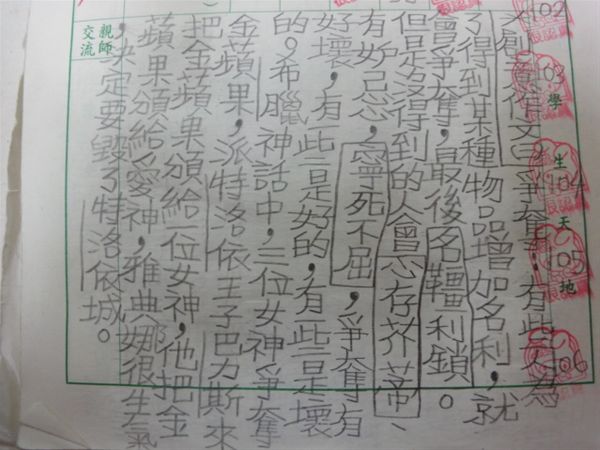 學生天地
102
103
104
105
106
創意作文曰爭奪，有些人為
了得到某種物品增加名利，就
會爭奪，最後名韁利鎖。
但是沒得到的人會心存芥蒂、
有妒忌心，寧死不屈，爭奪有
好壞，有些是好的，有些是壞
的。希臘神話中，三位女神爭奪
金蘋果，派特洛依王子巴力斯來
把金蘋果頒給一位女神，他把金
蘋果頒給愛神，雅典娜很生氣
，決定要毀了特洛依城。
親師交流